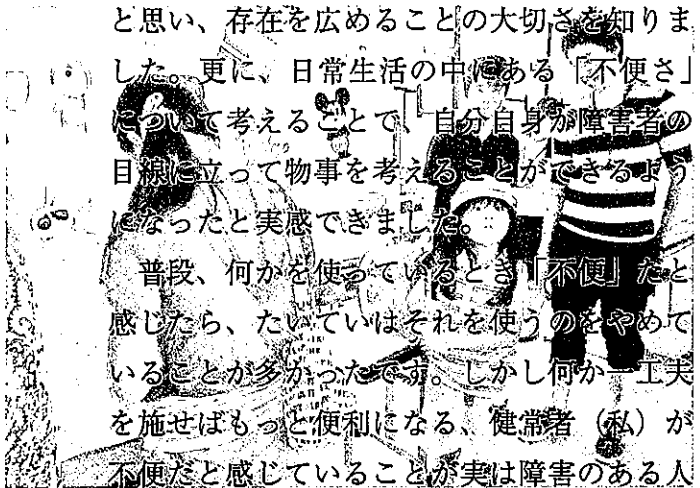 と思い、存在を広めることの大切さを知りま
した。更に、日常生活の中にある「不便さ」
について考えることで、自分自身が障害者の
目線に立って物事を考えることができるよう
になったと実感できました。
普段、何かを使っているとき「不便」だと
感じたら、たいていはそれを使うのをやめて
いることが多かったです。しかし何か一工夫
を施せばもっと便利になる、健常者（私）が
不便だと感じていることが実は障害のある人